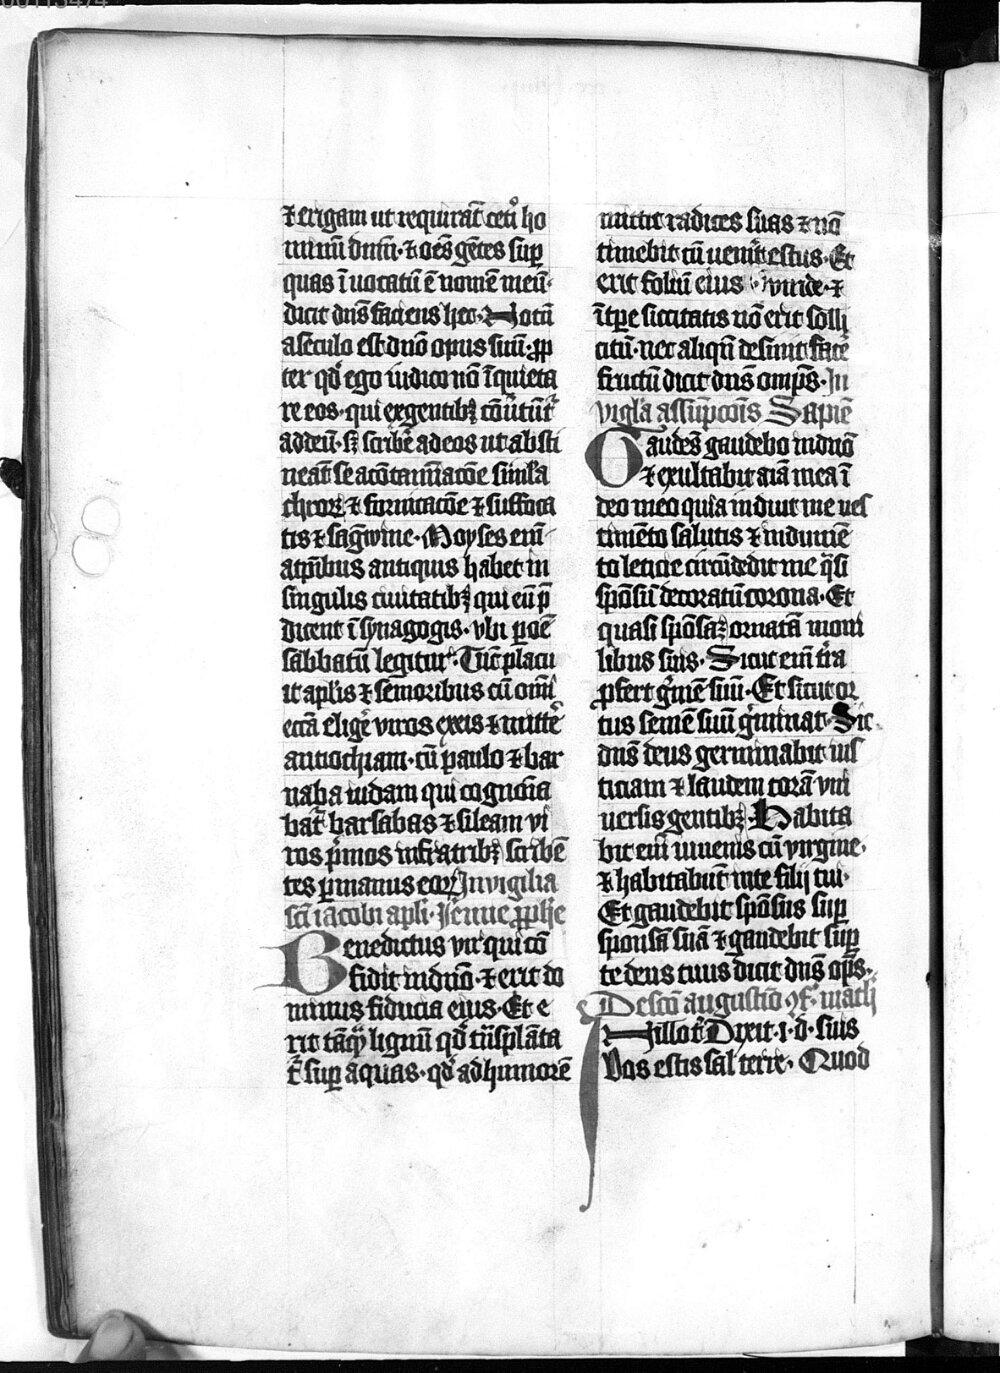 ⁊ erigam ut requirāt ceti̊ ho
minū dnm̄·⁊ oēs gētes sup̲
quas īuocatū ē nomē meū·
dicit dn̄s faciens hec· Notū
aseculo est dn̄o opus suū·ꝓp
ter qd̄ ego iudico nō īquieta
re eos·qui exgentibꝫ cōu̔tūt᷑
addeū·sꝫ scribe᷑ adeos ut absti
neāt᷑ se acōtamīacōe simla
chroꝝ ⁊ fornicacōe ⁊ suffoca
tis ⁊ sāgwine·Moyses eni᷑
atꝑibus antiquis habet in
singulis ciuitatibꝫ qui eū p̄
dicent ī synagogis·vbi ꝑ oē
sabbatū legitur·Tūc placu
it apl̄is ⁊ senioribus cū omi᷑
eccā elige᷑ viros exeis ⁊ mitte᷑
antiochiam·cū paulo ⁊ bar
naba iudam qui cognoīa
bat᷑ barsabas ⁊ sileam vi
ros p̄mos infratribꝫ scribē
tes ꝑmanus eoꝝ In vigilia
scī iacobi apl̄i·Jeꝛmie ꝓphe
Benedictus vir qui cō
fidit indn̄o·⁊ erit do
minus fiducia eius·Et e
rit tāqꝫ lignū qd̄ tn̄splāta
t᷑ suꝑ aquas·qd̄ ad humorē
mittit radices suas ⁊ nō
timebit cū uen̔it estus·Et
erit foliū eius viride·⁊
ītꝑe siccitatis nō erit solli
citū·nec aliqn̄ desinit face᷑
fructū dicit dn̄s omp̄s·In
vigl̄a assūpcōis Sapiē
Gaudēs gaudebo indn̄o
⁊ exultabit aīā mea ī
deo meo quia induit me ves
timēto salutis ⁊ indumē
to leticie circūdedit me q̄si
spōsū decoratū corona·Et
quasi spōsaꝫ ornatā moni
libus suis·Sicut eni᷑ t̄ra
ꝓfert g̔mē suū·Et sicut or
tus semē suū g̔minat·Sic
dn̄s deus germinabit ius
ticiam ⁊ laudem corā vni
uersis gentibꝫ·Habita
bit eni᷑ iuuenis cū virgine·
⁊ habitabūt inte filij tui·
Et gaudebit spōsus suꝑ
sponsā suā ⁊ gaudebit suꝑ
te deus tuus dicit dn̄s op̄s·
De scō augustīo ꝯf· math
Jn illo t᷑ Dixit·i·d·suis
Vos estis sal terre· Quod